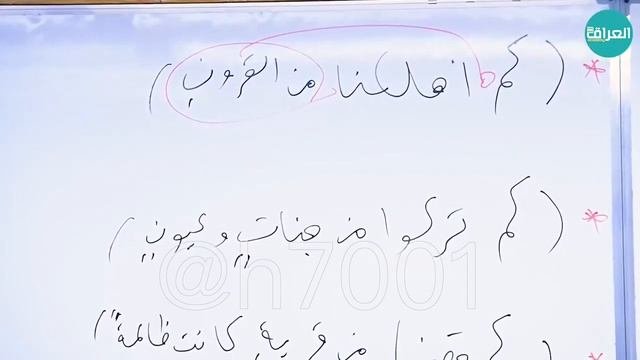 العراقية
* (كم أهلكنا من القرون)
* (كم تركوا من جناتٍ وعيونٍ)
@h7001
من قريةٍ كانت ظالمةً)